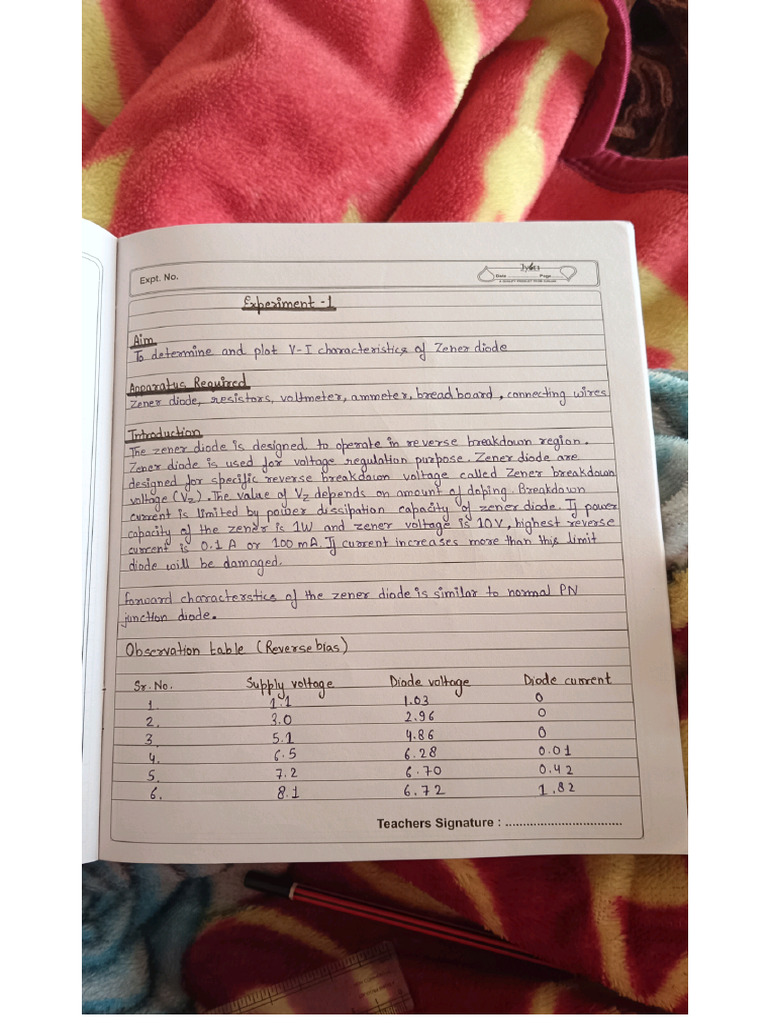 Expt. No.
Date Page
Experiment -1
Aim
To determine and plot V-I characteristics of Zener diode
Apparatus Required
Zener diode, resistors, voltmeter, ammeter, bread board, connecting wires
Introduction
The zener diode is designed to operate in reverse breakdown region.
Zener diode is used for voltage regulation purpose. Zener diode are
designed for specific reverse breakdown voltage called Zener breakdown
voltage (Vz). The value of Vz depends on amount of doping. Breakdown
current is limited by power dissipation capacity of zener diode. If power
capacity of the zener is 1W and zener voltage is 10V, highest reverse
current is 0.1 A or 100 mA. If current increases more than this limit
diode will be damaged.
forward characterstics of the zener diode is similar to normal PN
junction diode.
Observation table (Reverse bias)
Sr. No. Supply voltage Diode voltage Diode current
1. 1.1 1.03 0
2. 3.0 2.96 0
3. 5.1 4.86 0
4. 6.5 6.28 0.01
5. 7.2 6.70 0.42
6. 8.1 6.72 1.82
Teachers Signature : ................................